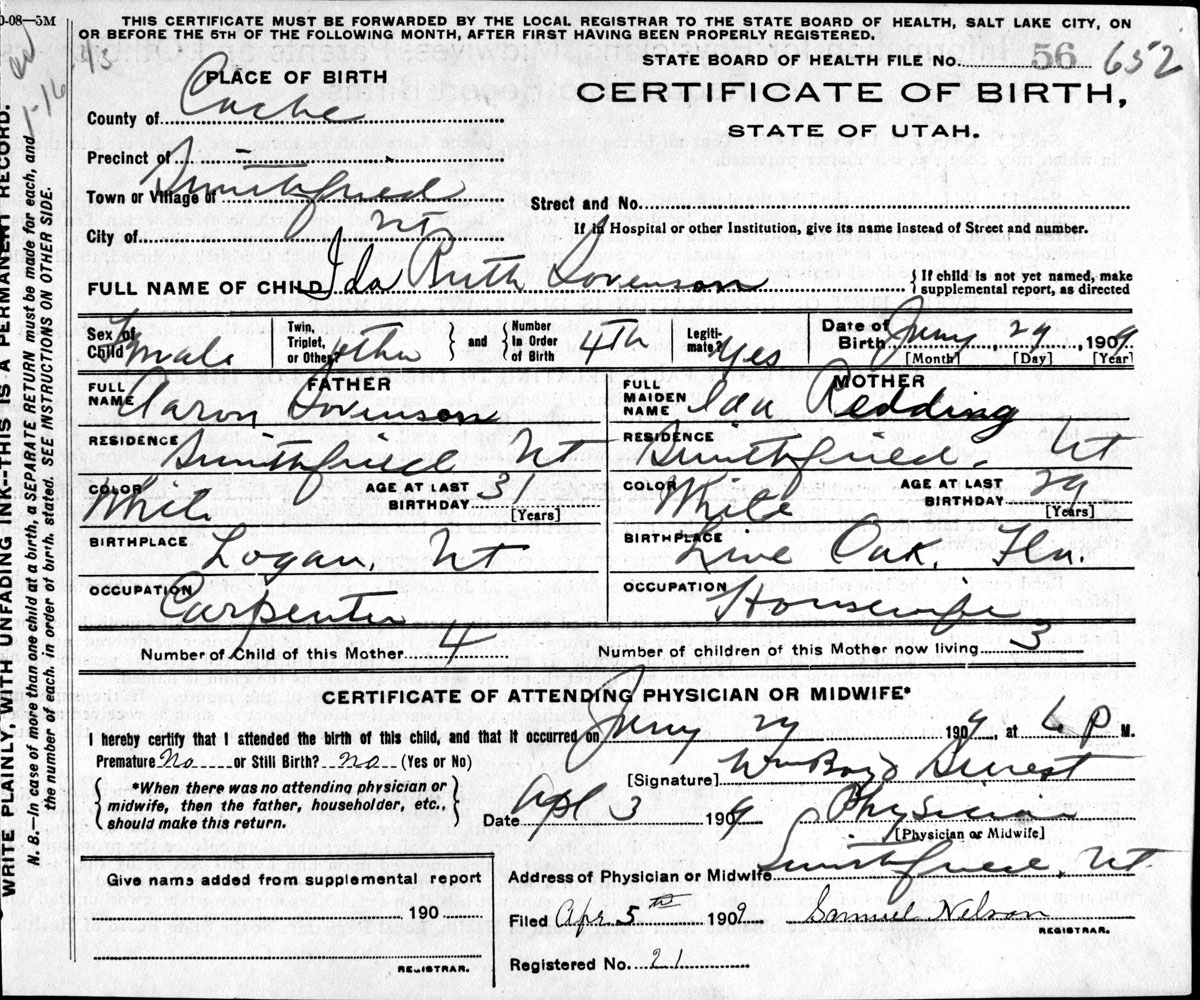 0-08—5M
THIS CERTIFICATE MUST BE FORWARDED BY THE LOCAL REGISTRAR TO THE STATE BOARD OF HEALTH, SALT LAKE CITY, ON
OR BEFORE THE 5TH OF THE FOLLOWING MONTH, AFTER FIRST HAVING BEEN PROPERLY REGISTERED.
STATE BOARD OF HEALTH FILE No. 56 652
PLACE OF BIRTH
CERTIFICATE OF BIRTH,
STATE OF UTAH.
County of Cache
Precinct of
Town or Village of Smithfield
Street and No.
City of Ut
If in Hospital or other Institution, give its name instead of Street and number.
FULL NAME OF CHILD Ida Ruth Sorenson { If child is not yet named, make supplemental report, as directed
Sex of Child Female Twin, Triplet, or Other? other } and { Number in Order of Birth 4th Legiti-mate? Yes Date of Birth 29, 1909
[Month] [Day] [Year]
FATHER MOTHER
FULL NAME Aaron Sorenson FULL MAIDEN NAME Ida Redding
RESIDENCE Smithfield Ut RESIDENCE Smithfield, Ut
COLOR White AGE AT LAST BIRTHDAY 31 [Years] COLOR White AGE AT LAST BIRTHDAY 29 [Years]
BIRTHPLACE Logan, Ut BIRTHPLACE Live Oak, Fla.
OCCUPATION Carpenter OCCUPATION Housewife
Number of Child of this Mother 4 Number of children of this Mother now living 3
CERTIFICATE OF ATTENDING PHYSICIAN OR MIDWIFE*
I hereby certify that I attended the birth of this child, and that it occurred on 29 1909, at 6 P M.
Premature No or Still Birth? No (Yes or No)
[Signature]
{ *When there was no attending physician or midwife, then the father, householder, etc., should make this return. }
Date Apl 3 1909 Physician
[Physician or Midwife]
Address of Physician or Midwife Smithfield, Ut
Give name added from supplemental report
190
REGISTRAR.
Filed Apr 5th 1909 Samuel Nelson
REGISTRAR.
Registered No. 21
WRITE PLAINLY, WITH UNFADING INK--THIS IS A PERMANENT RECORD.
N. B.—In case of more than one child at a birth, a SEPARATE RETURN must be made for each, and
the number of each, in order of birth, stated. SEE INSTRUCTIONS ON OTHER SIDE.